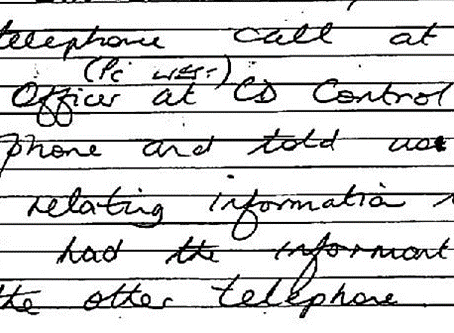 telephone call at
(Pc West)
Officer at CD Control
phone and told us
relating information
had the informant
the other telephone